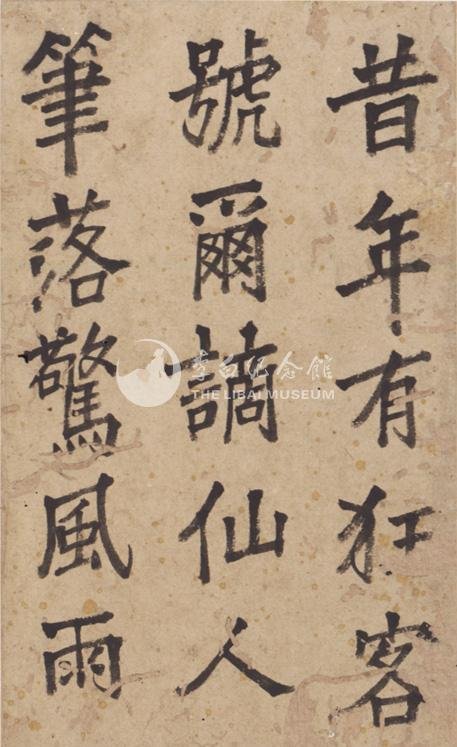 昔年有狂客
號爾謫仙人
筆落驚風雨
李白纪念馆
THE LIBAI MUSEUM